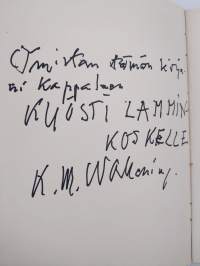 Omistan tämän kirja-
ni kappaleen
KYÖSTI LAMMIN
KOSKELLE
K. M. Wallenius.